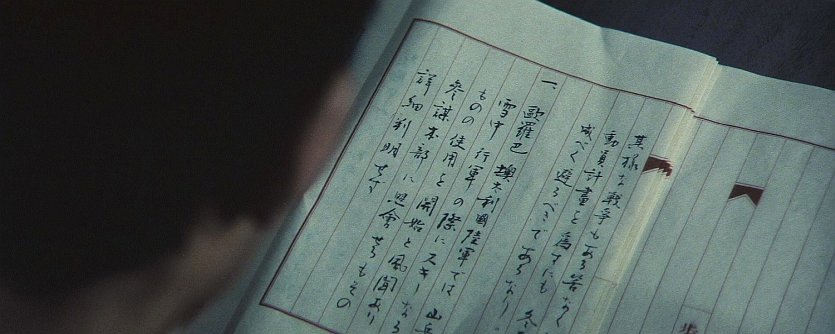 其様な戦争もある筈なく
動員計畫を為すにも 冬
成べく避るべきであるなり
一、
歐羅巴 墺太利國陸軍では 山岳
雪中行軍の際にスキーなる
ものの使用を開始と風聞あり
参謀本部に照會せるもその
詳細判明せず